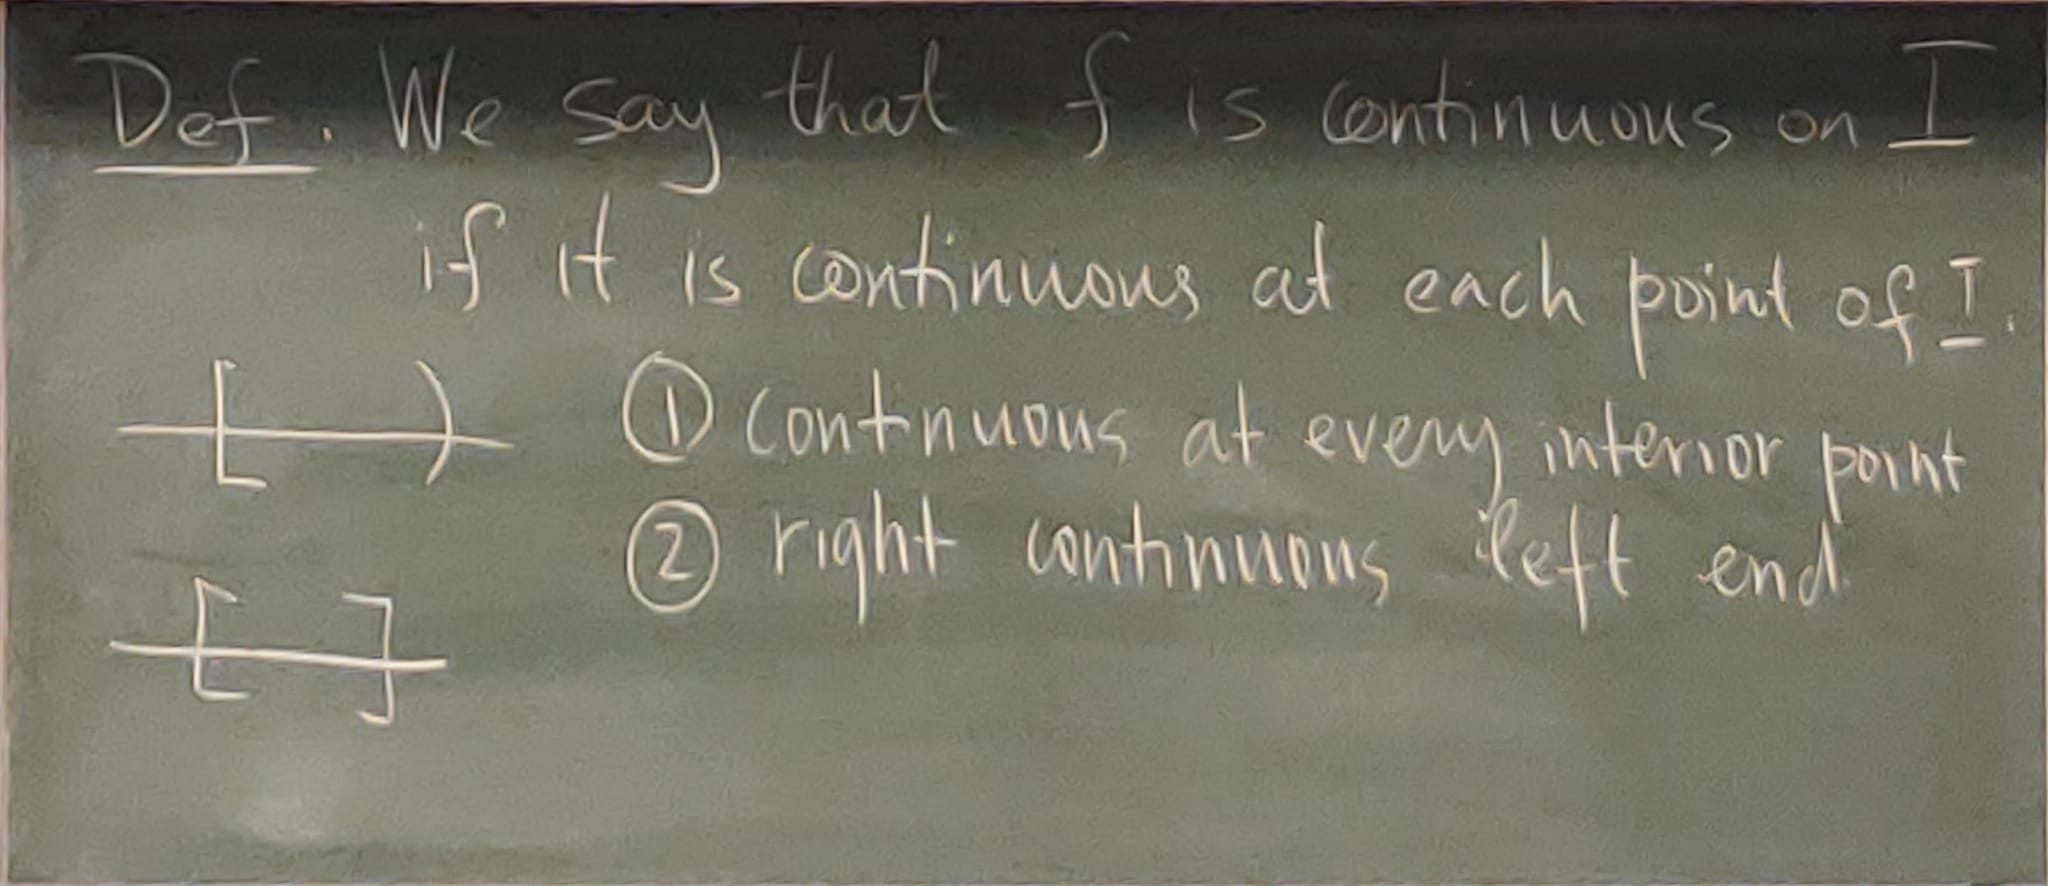 Def. We say that f is continuous on I
if it is continuous at each point of I.
① continuous at every interior point
② right continuous left end